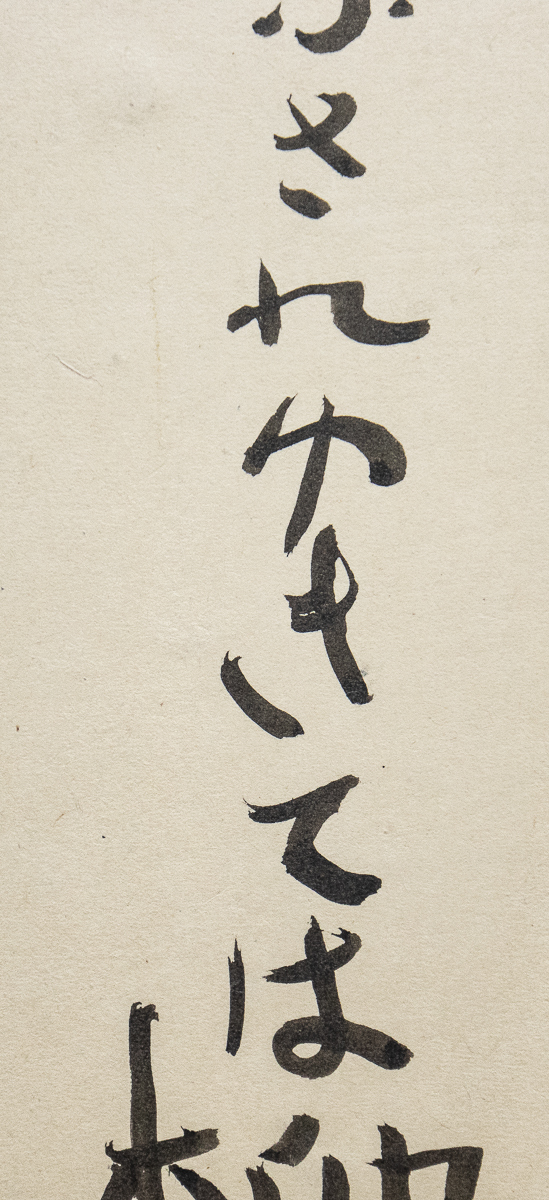 ふされゆきては